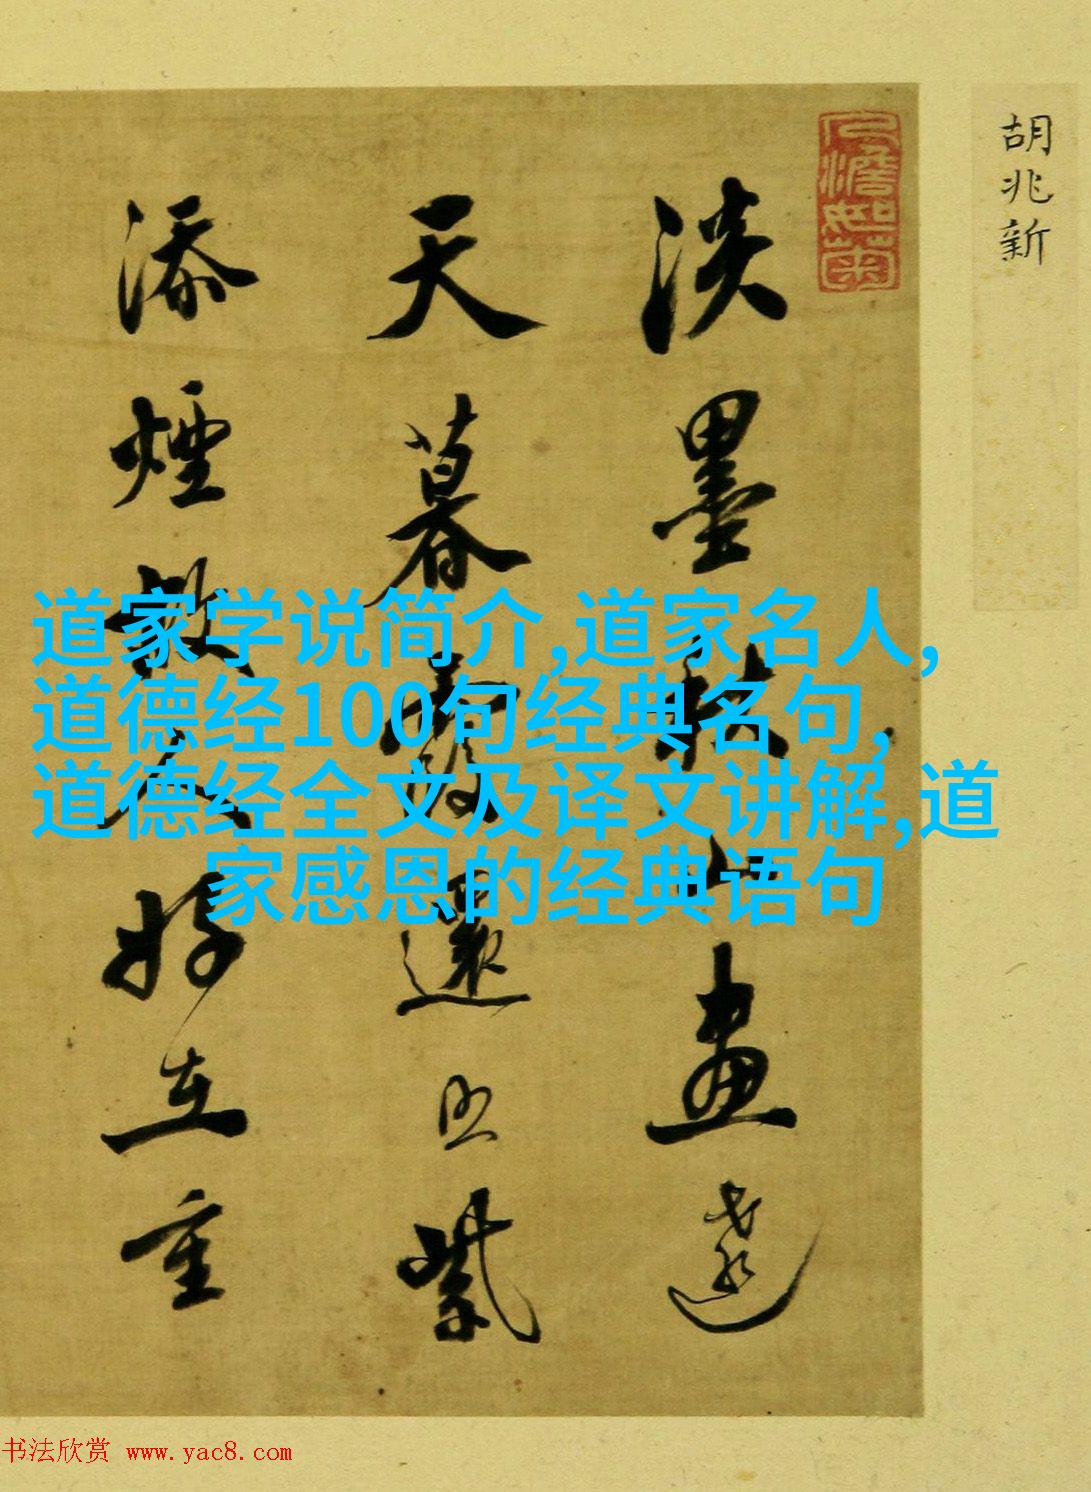 胡兆新
淡墨秋山畫遠
天暮霞還照紫
添煙故人好在重
道家学说简介,道家名人,
道德经100句经典名句,
道德经全文及译文讲解,道
家感恩的经典语句
书法欣赏 www.yac8.com